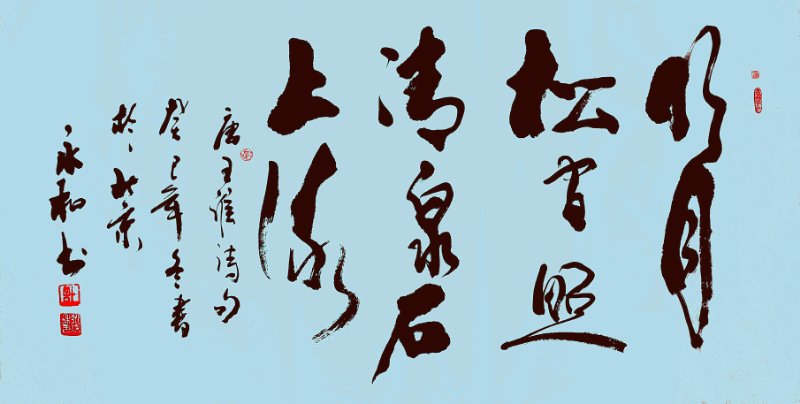 明月
松间照
清泉石
上流
唐王维诗句
癸巳年冬书
於北京
永和书